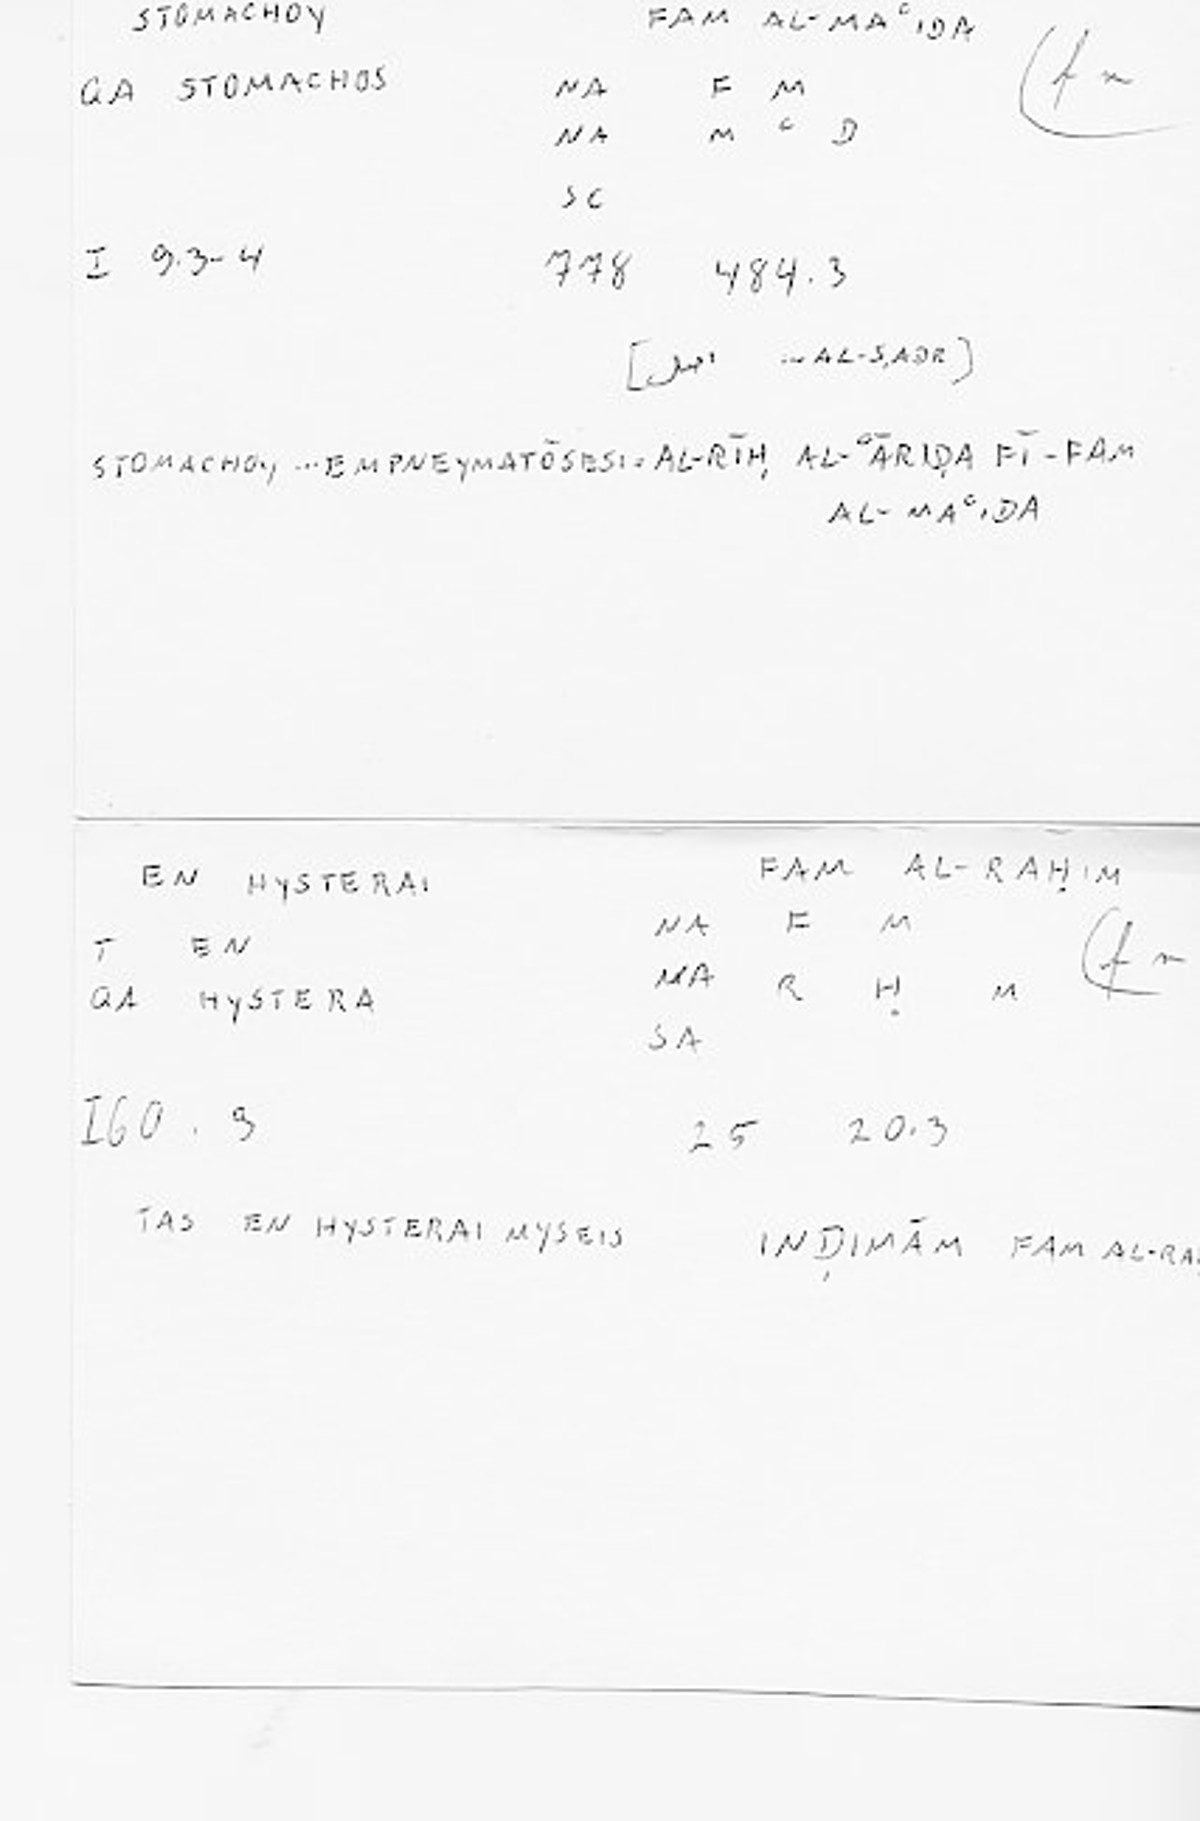 STOMACHOY FAM AL-MAʿIDA
QA STOMACHOS NA F M (fm
NA M ʿ D
SC
I 9.3-4 778 484.3
[اصل ... AL-ṢADR]
STOMACHOY ... EMPNEYMATŌSESI = AL-RĪḤ AL-ʿĀRIḌA FĪ-FAM
AL-MAʿIDA
EN HYSTERAI FAM AL-RAḤIM
NA F M
T EN (fm
QA HYSTERA MA R Ḥ M
SA
I 60.9 25 20.3
TAS EN HYSTERAI MYSEIS INḌIMĀM FAM AL-RAḤ